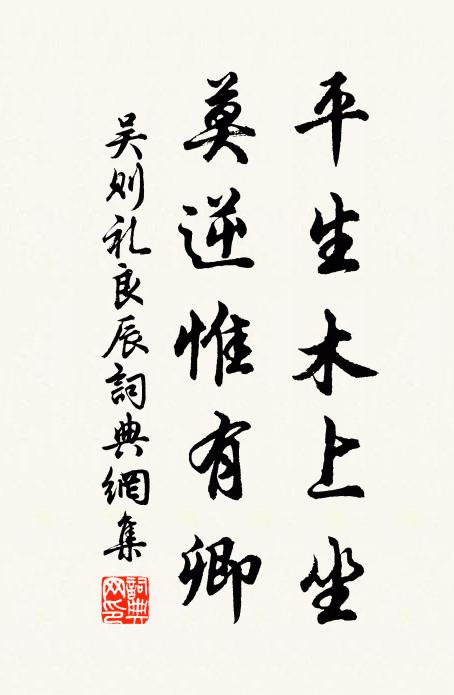 平生木上坐
莫逆惟有卿
吴则礼良辰詞典網集
詞典网印